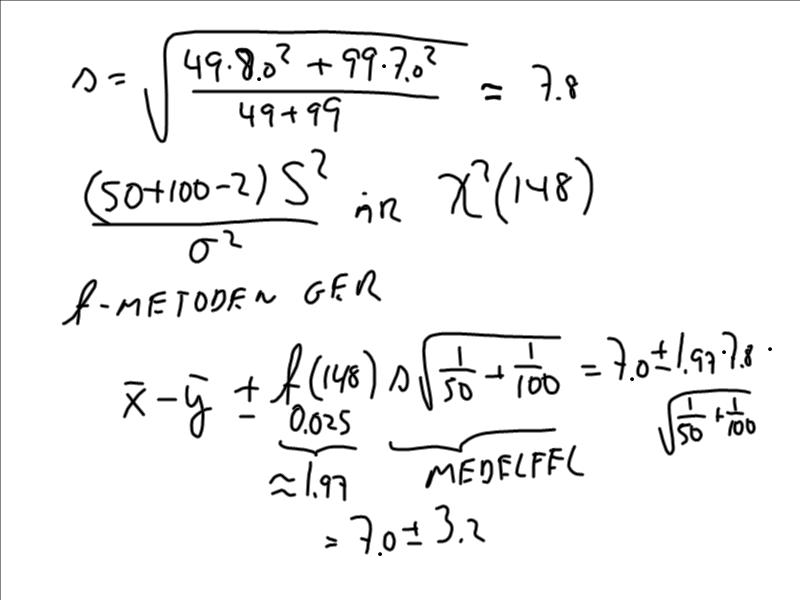 s = √((49·8.0² + 99·7.0²)/(49+99)) = 7.8
(50+100-2)S²/σ² är χ²(148)
t-METODEN GER
x̄ - ȳ ± t(148) s√(1/50 + 1/100) = 7.0 ± 1.97·7.8·
0.025 √(1/50 + 1/100)
≈1.97 MEDELFEL
= 7.0 ± 3.2